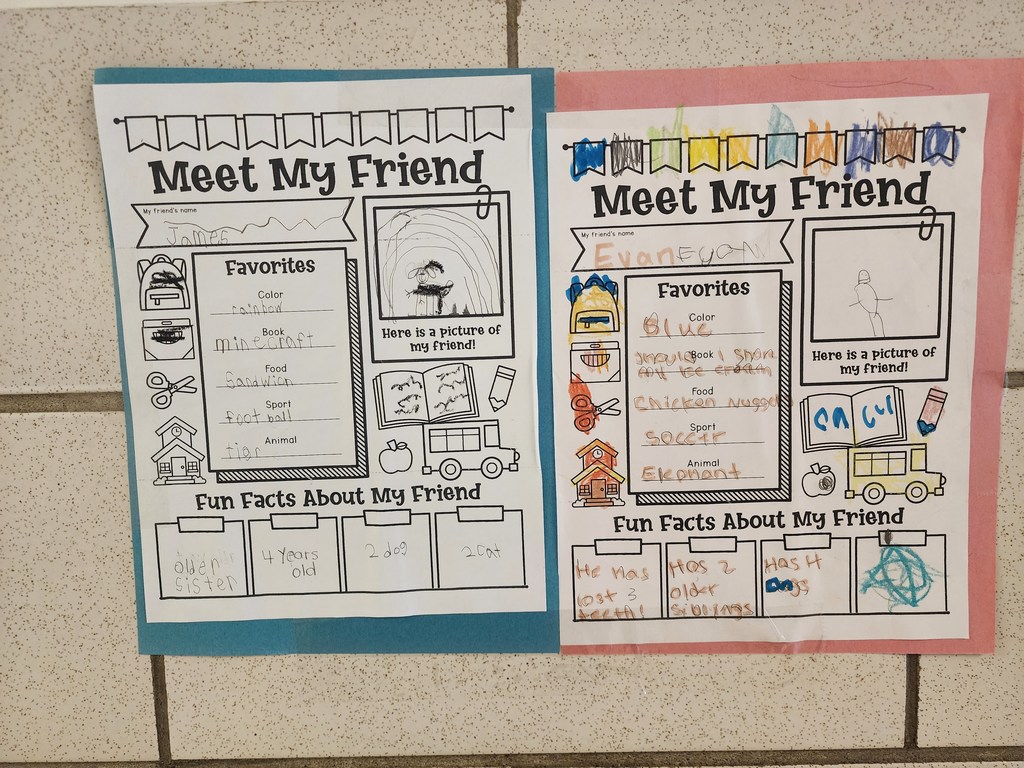 Meet My Friend
My friend's name
James
Favorites
Color
rainbow
Book
minecraft
Food
Sandwich
Sport
foot ball
Animal
tigr
Here is a picture of
my friend!
Fun Facts About My Friend
older
sister
4 Years
old
2 dog
2 cat
Meet My Friend
My friend's name
Evan
Favorites
Color
Blue
Book
Should I Share
my Ice cream
Food
Chicken Nuggets
Sport
Soccer
Animal
Elephant
Here is a picture of
my friend!
Fun Facts About My Friend
He Has
lost 3
teeth!
Has 2
older
siblings
Has 4